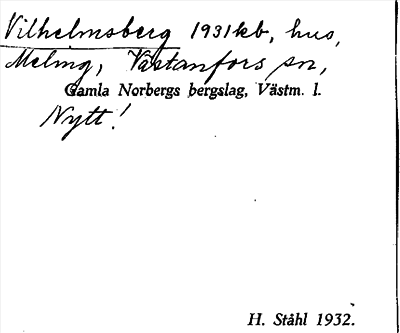 Vilhelmsberg 1931 kb, hus,
Meling, Västanfors sn,
Gamla Norbergs bergslag, Västm. l.
Nytt!
H. Ståhl 1932.